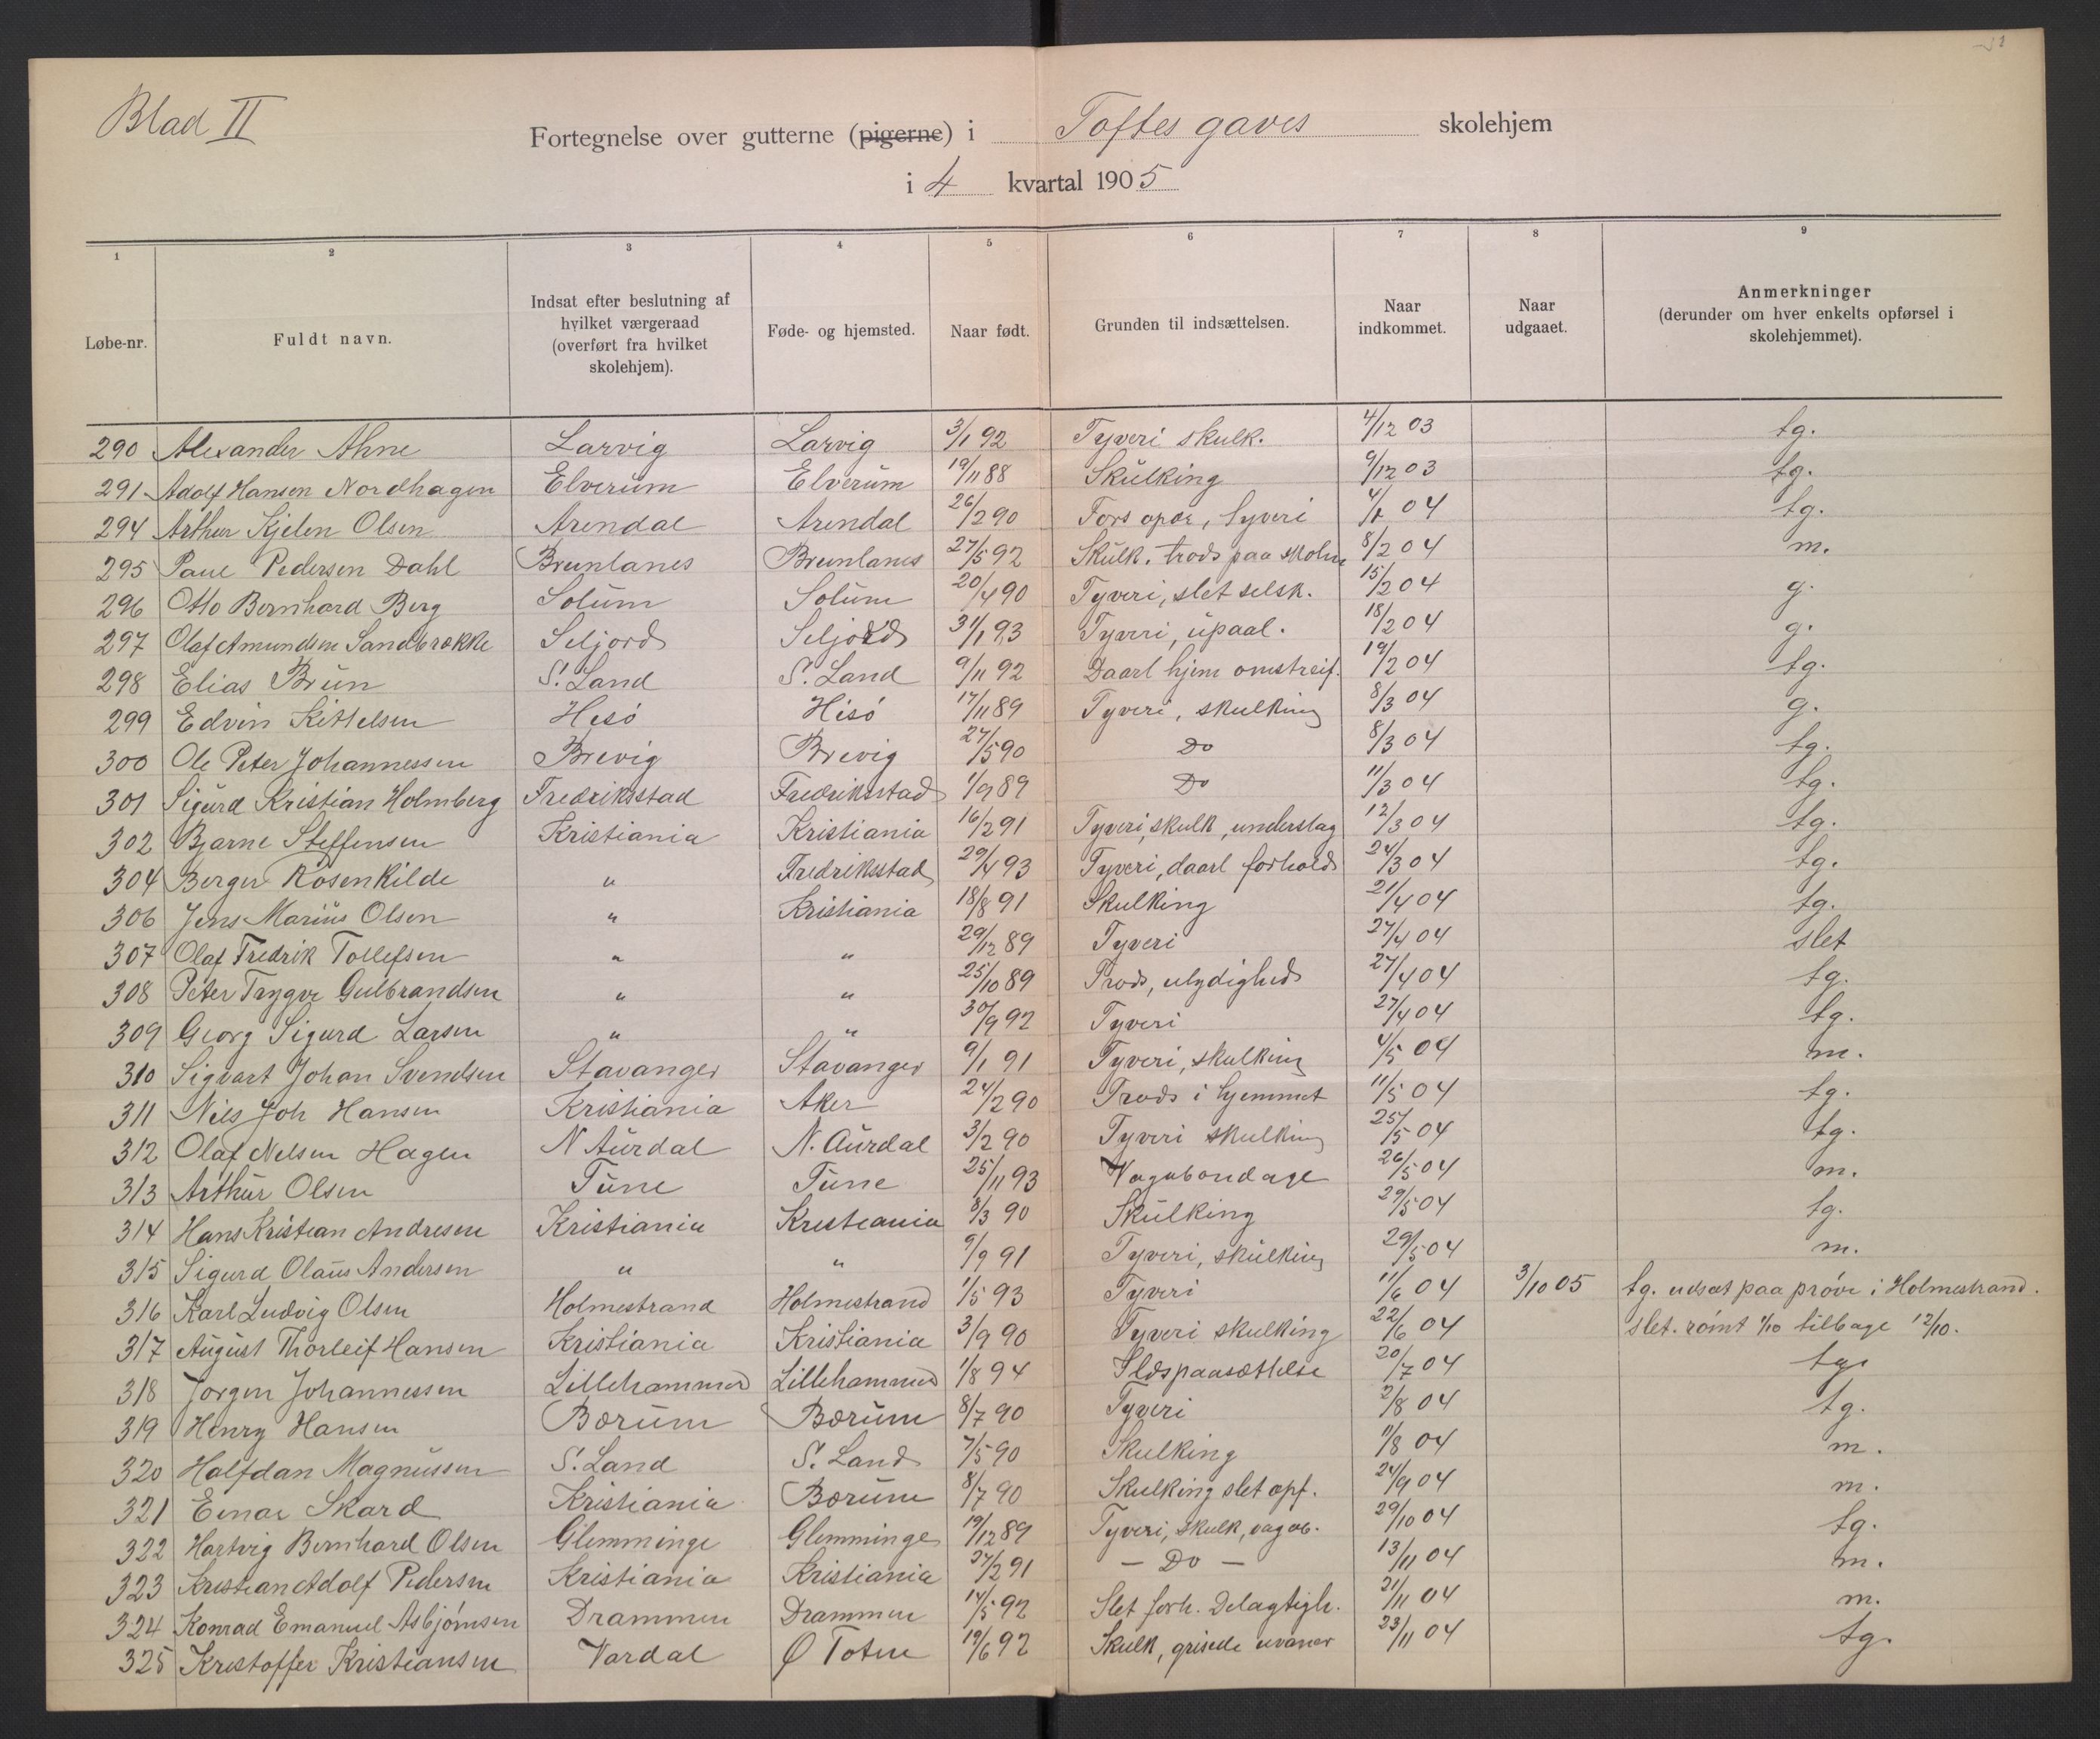 Blad II
Fortegnelse over gutterne (pigerne) i Toftes gaves skolehjem
i 4 kvartal 1905
1 2 3 4 5 6 7 8 9
Løbe-nr. Fuldt navn. Indsat efter beslutning af hvilket værgeraad (overført fra hvilket skolehjem). Føde- og hjemsted. Naar født. Grunden til indsættelsen. Naar indkommet. Naar udgaaet. Anmerkninger (derunder om hver enkelts opførsel i skolehjemmet).
290 Alexander Ahne Larvig Larvig 3/1 92 Tyveri skulk. 4/12 03 tg.
291 Adolf Hansen Nordhagen Elverum Elverum 19/11 88 Skulking 9/12 03 tg.
294 Arthur Kjelen Olsen Arendal Arendal 26/2 90 Fors opdr, tyveri 4/1 04 tg.
295 Paul Pedersen Dahl Brunlanes Brunlanes 27/5 92 Skulk. trods paa skolen 8/2 04 m.
296 Otto Bernhard Berg Solum Solum 20/4 90 Tyveri, slet selsk. 15/2 04 g.
297 Olaf Amundsen Sandbrække Seljord Seljord 31/1 93 Tyveri, upaal. 18/2 04 g.
298 Elias Brun S. Land S. Land 9/11 92 Daarl hjem omstreif. 19/2 04 tg.
299 Edvin Kittelsen Hisö Hisö 17/11 89 Tyveri, skulking 8/3 04 g.
300 Ole Peter Johannessen Brevig Brevig 27/5 90 Do 8/3 04 tg.
301 Sigurd Kristian Holmberg Fredriksstad Fredriksstad 1/9 89 Do 11/3 04 tg.
302 Bjarne Steffensen Kristiania Kristiania 16/2 91 Tyveri, skulk, underslag 12/3 04 tg.
304 Berger Rosenkilde " Fredriksstad 29/4 93 Tyveri, daarl forhold 24/3 04 tg.
306 Jens Marius Olsen " Kristiania 18/8 91 Skulking 21/4 04 tg.
307 Olaf Fredrik Tollefsen " " 29/12 89 Tyveri 27/4 04 slet
308 Peter Trygve Gulbrandsen " " 25/10 89 Trods, ulydighed 27/4 04 tg.
309 Georg Sigurd Larsen " " 30/9 92 Tyveri 27/4 04 tg.
310 Sigvart Johan Svendsen Stavanger Stavanger 9/1 91 Tyveri, skulking 4/5 04 m.
311 Nils Joh Hansen Kristiania Aker 24/2 90 Trods i hjemmet 11/5 04 tg.
312 Olaf Nelsen Hagen N Aurdal N. Aurdal 3/2 90 Tyveri skulking 25/5 04 tg.
313 Arthur Olsen Tune Tune 25/11 93 Vagabondage 26/5 04 m.
314 Hans Kristian Andresen Kristiania Kristiania 8/3 90 Skulking 29/5 04 tg.
315 Sigurd Olaus Andersen " " 9/9 91 Tyveri, skulking 29/5 04 m.
316 Karl Ludvig Olsen Holmestrand Holmestrand 1/5 93 Tyveri 11/6 04 3/10 05 tg. udsat paa pröve i Holmestrand.
317 August Thorleif Hansen Kristiania Kristiania 3/9 90 Tyveri skulking 22/6 04 slet. römt 1/10 tilbage 12/10.
318 Jörgen Johannessen Lillehammer Lillehammer 1/8 94 Ildspaasættelse 20/7 04 tg.
319 Henry Hansen Bærum Bærum 8/7 90 Tyveri 2/8 04 tg.
320 Halfdan Magnussen S. Land S. Land 7/5 90 Skulking 11/8 04 m.
321 Einar Skard Kristiania Bærum 8/7 90 Skulking slet opf. 24/9 04 m.
322 Hartvig Bernhard Olsen Glemminge Glemminge 19/12 89 Tyveri, skulk, vagab. 29/10 04 tg.
323 Kristian Adolf Pedersen Kristiania Kristiania 27/2 91 — Do — 13/11 04 m.
324 Konrad Emanuel Asbjörnsen Drammen Drammen 14/5 92 Slet forh. Delagtigh. 21/11 04 m.
325 Kristoffer Kristiansen Vardal Ø Toten 19/6 92 Skulk, grisede uvaner 23/11 04 tg.